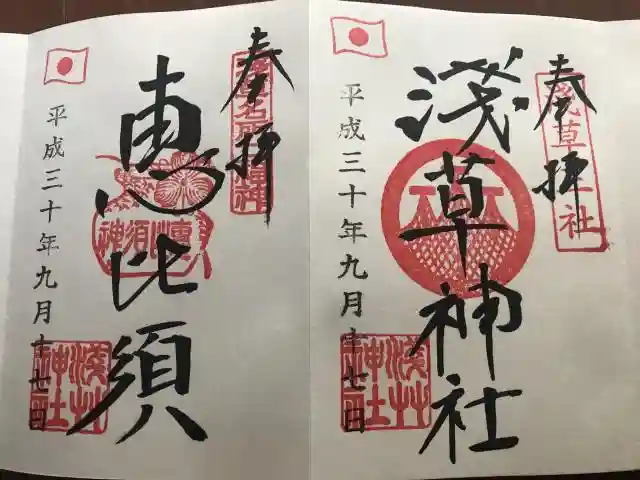 奉拝
淺草神社
浅草三社
平成三十年九月十七日
淺草神社
奉拝
恵比須
恵比須神
平成三十年九月十七日
淺草神社